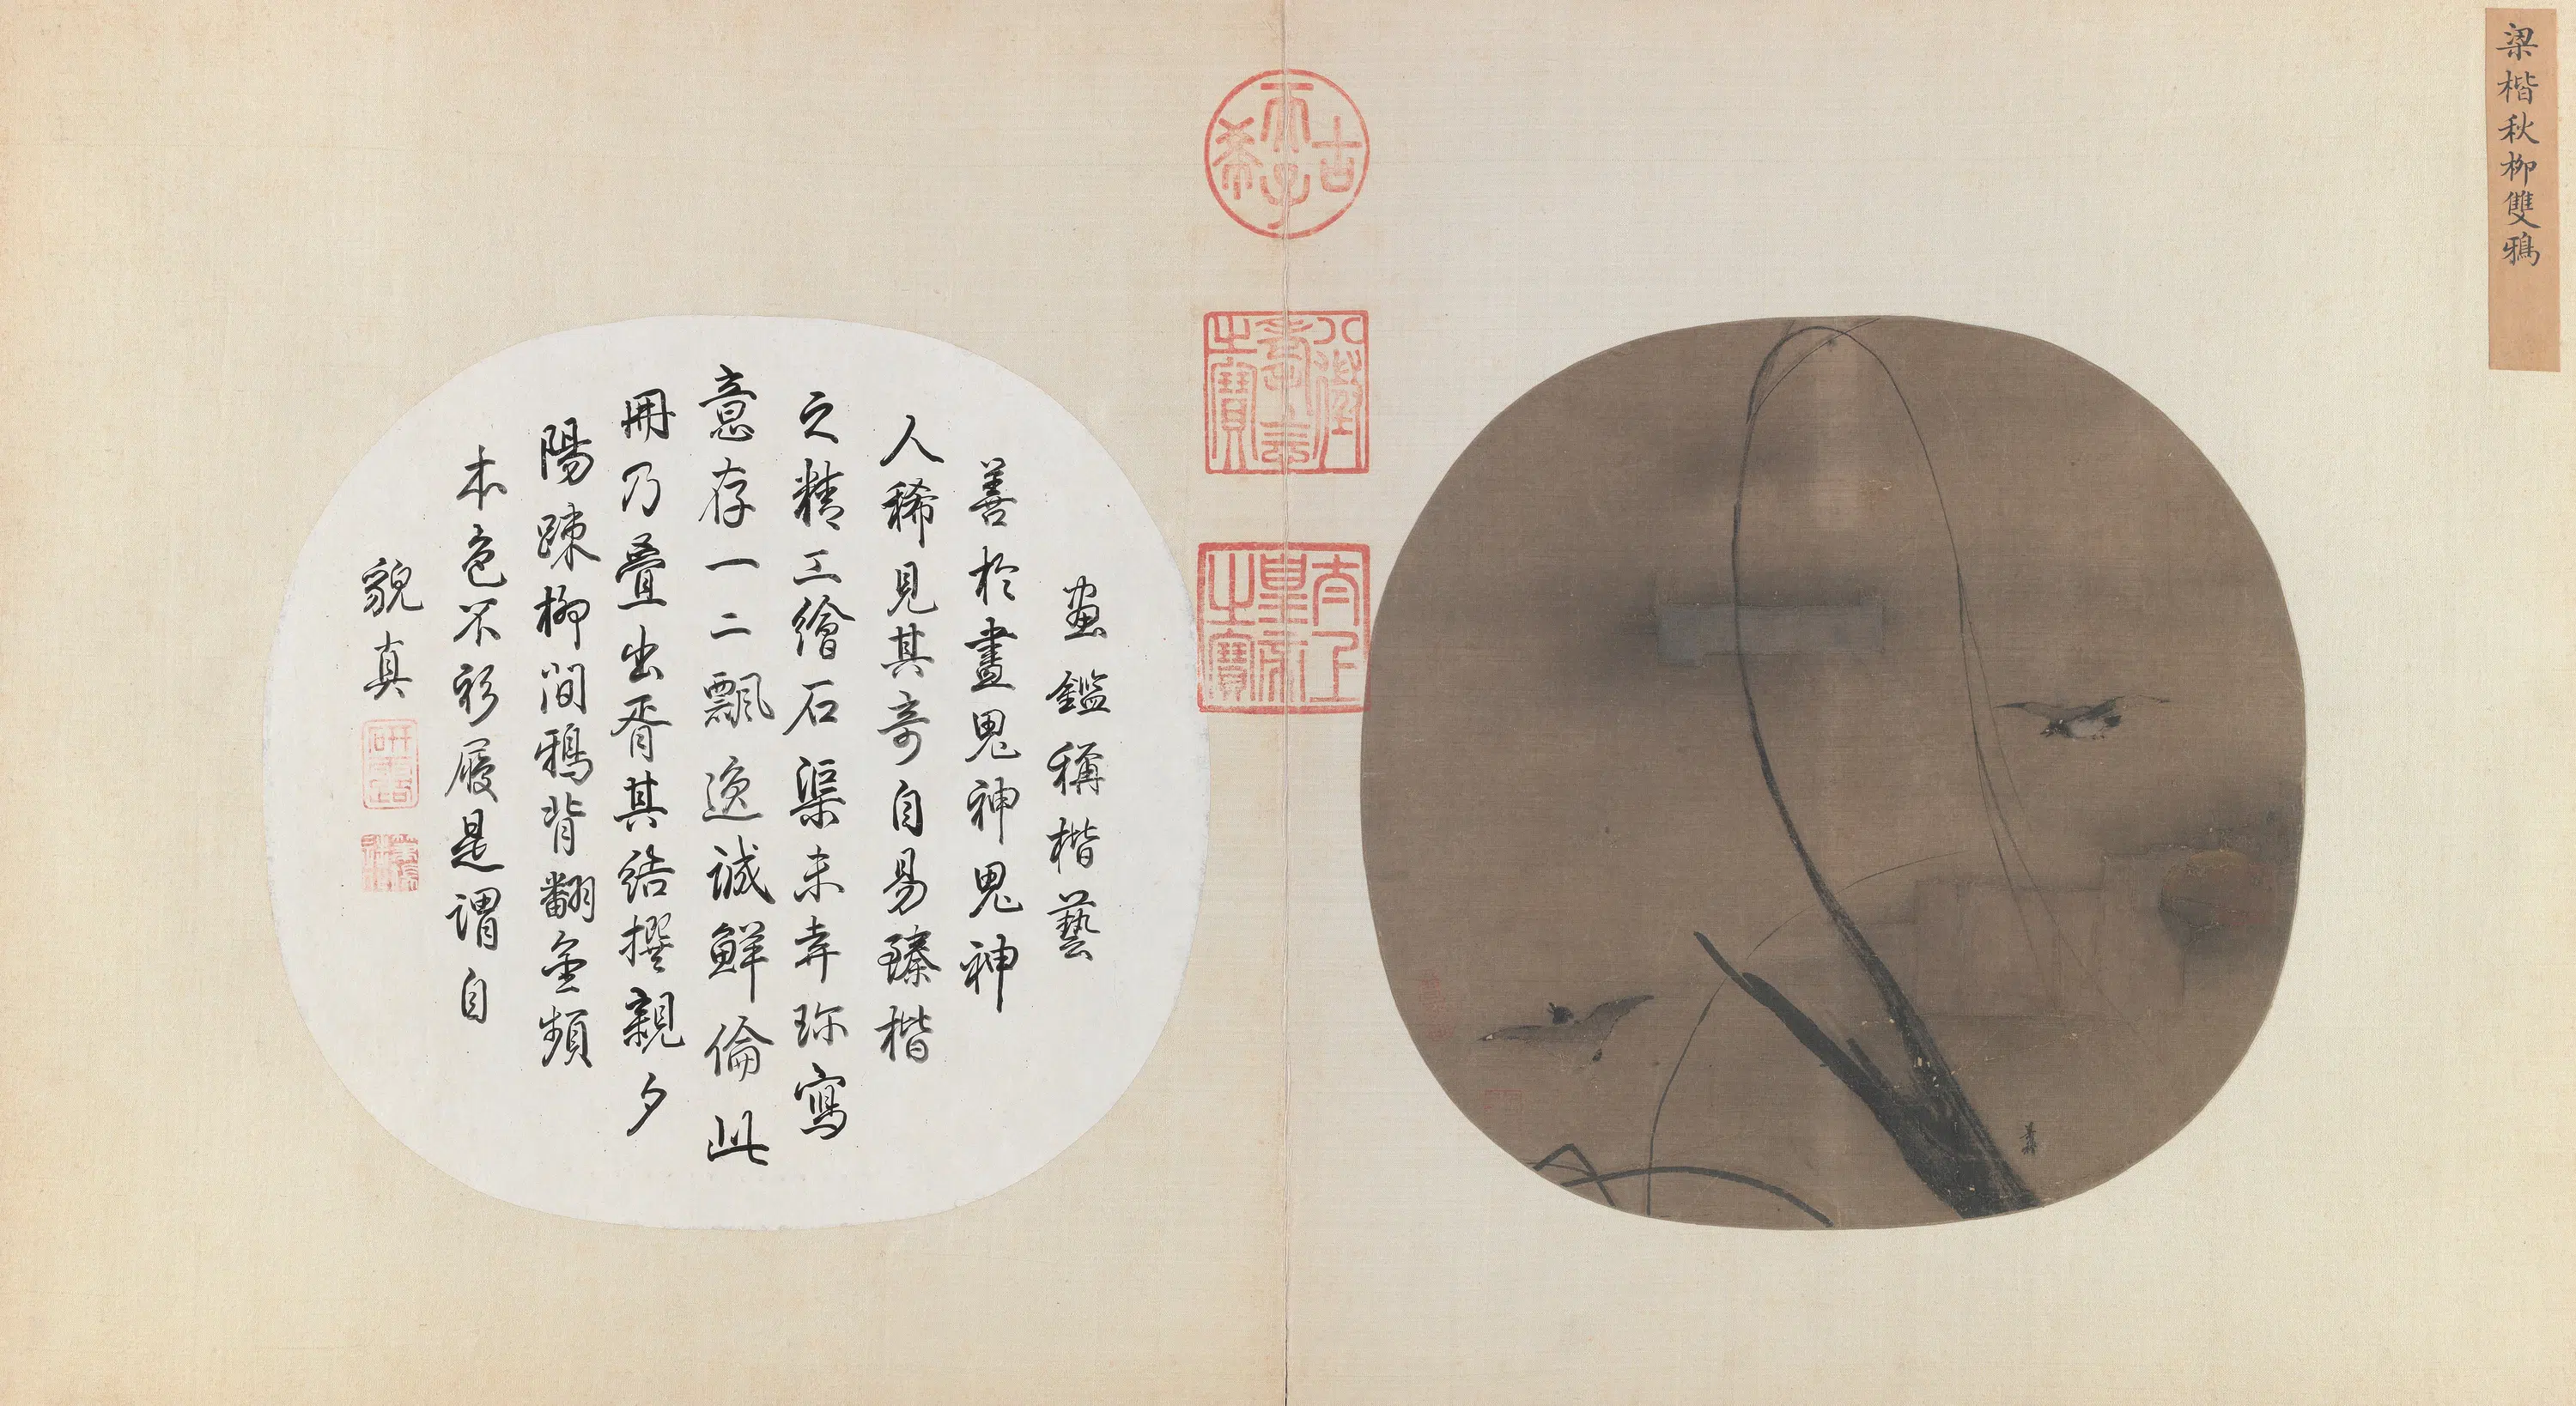 梁楷秋柳雙鴉
古希天子
八徵耄念之寶
太上皇帝之寶
畫鑑稱楷藝
善於畫鬼神鬼神
人稀見其奇自易臻楷
之精工繪石渠未弆珎寫
意存一二飄逸誠鮮倫此
冊乃疊出胥其結撰親夕
陽踈柳間鴉背翻金頻
本色不衫履是謂自
貌真